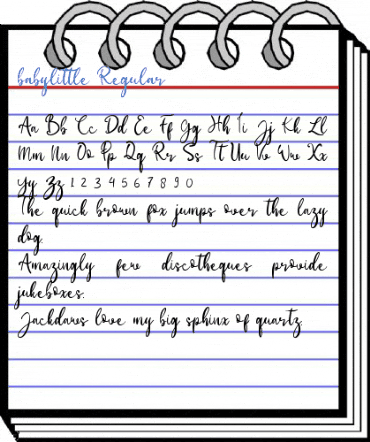 babylittle Regular
Aa Bb Cc Dd Ee Ff Gg Hh Ii Jj Kk Ll
Mm Nn Oo Pp Qq Rr Ss Tt Uu Vv Ww Xx
Yy Zz 1 2 3 4 5 6 7 8 9 0
The quick brown fox jumps over the lazy
dog.
Amazingly few discotheques provide
jukeboxes.
Jackdaws love my big sphinx of quartz.